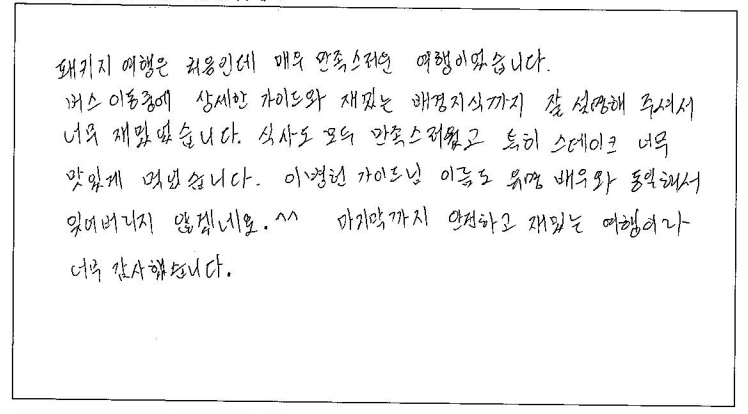 패키지 여행은 처음인데 매우 만족스러운 여행이었습니다.
버스 이동중에 상세한 가이드와 재밌는 배경지식까지 잘 설명해 주셔서
너무 재밌었습니다. 식사도 모두 만족스러웠고 특히 스테이크 너무
맛있게 먹었습니다. 이병헌 가이드님 이름도 유명 배우와 동일해서
잊어버리지 않겠네요.^^ 마지막까지 안전하고 재밌는 여행이라
너무 감사했습니다.